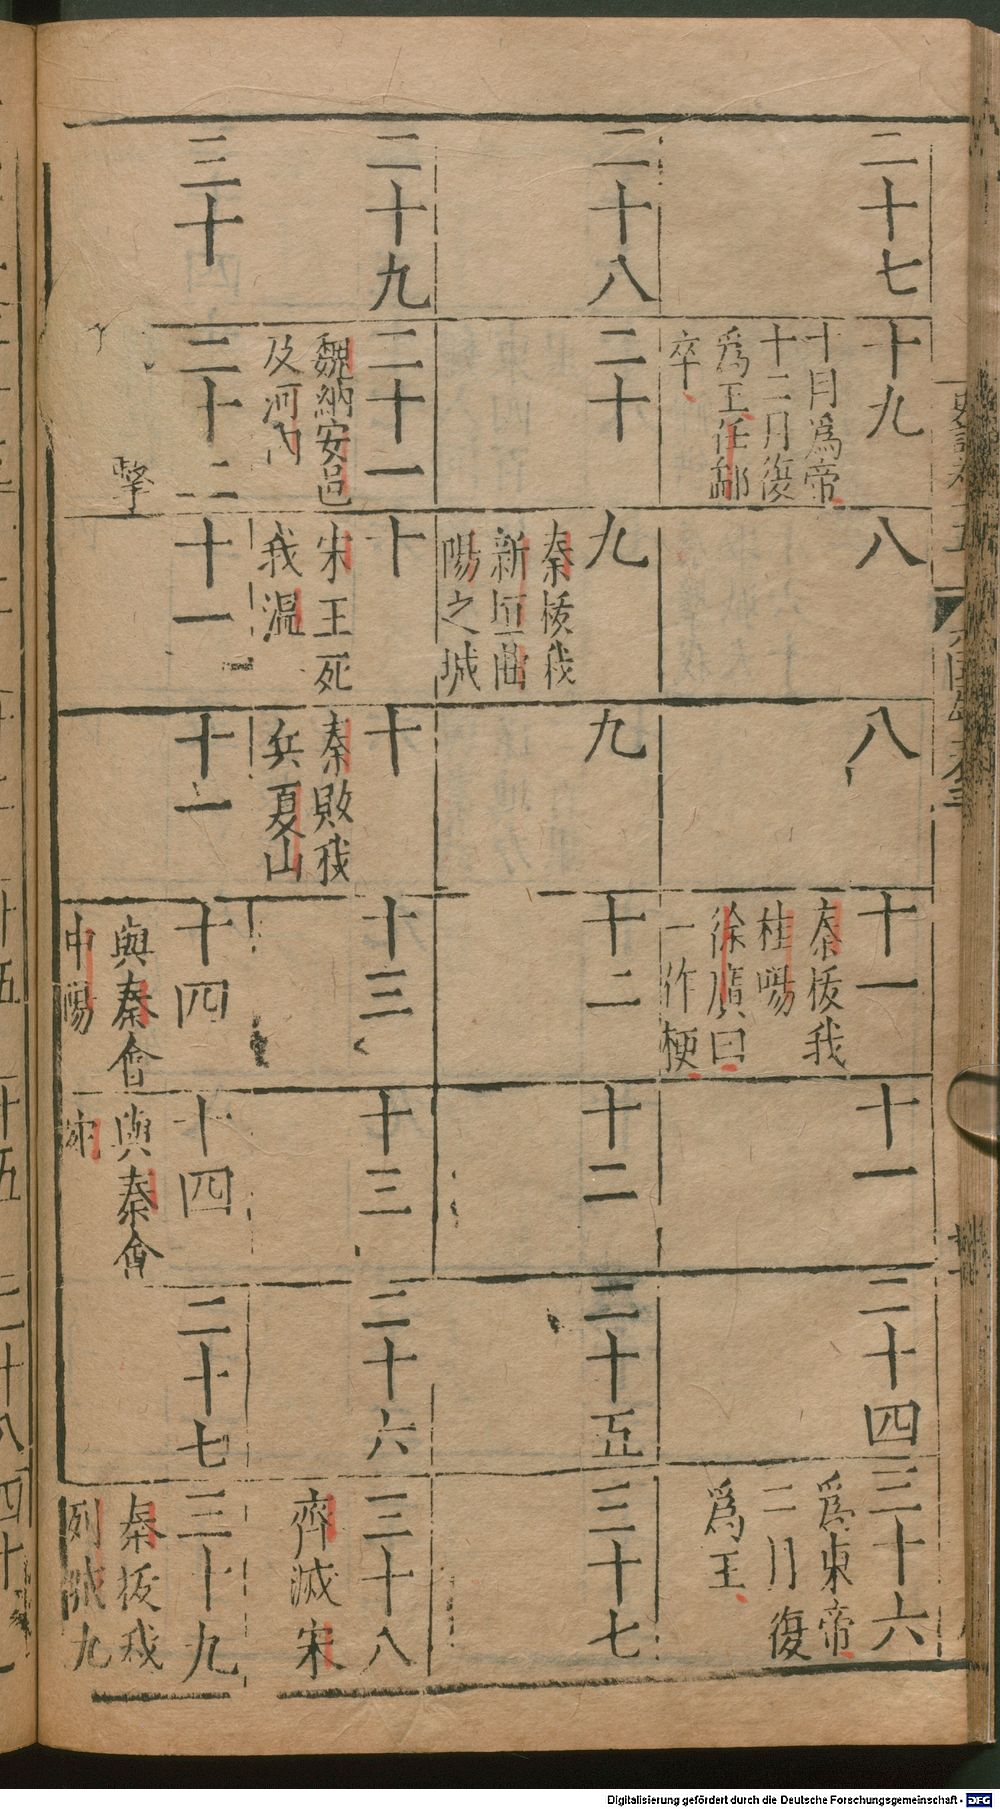 二十七
十九
十月爲帝
十二月復
爲王任鄙
卒
八
八
十一
秦拔我
桂陽
徐廣曰
一作梗
十一
二十四
三十六
爲東帝
二月復
爲王
二十八
二十
九
秦拔我
新垣曲
陽之城
九
十二
十二
二十五
三十七
二十九
二十一
魏納安邑
及河內
十
宋王死
我溫
十
秦敗我
兵夏山
十三
十三
二十六
三十八
齊滅宋
三十
二十二
擊
十一
十一
十四
與秦會
中陽
十四
與秦會
二十七
三十九
秦拔我
列城九
Digitalisierung gefördert durch die Deutsche Forschungsgemeinschaft - DFG